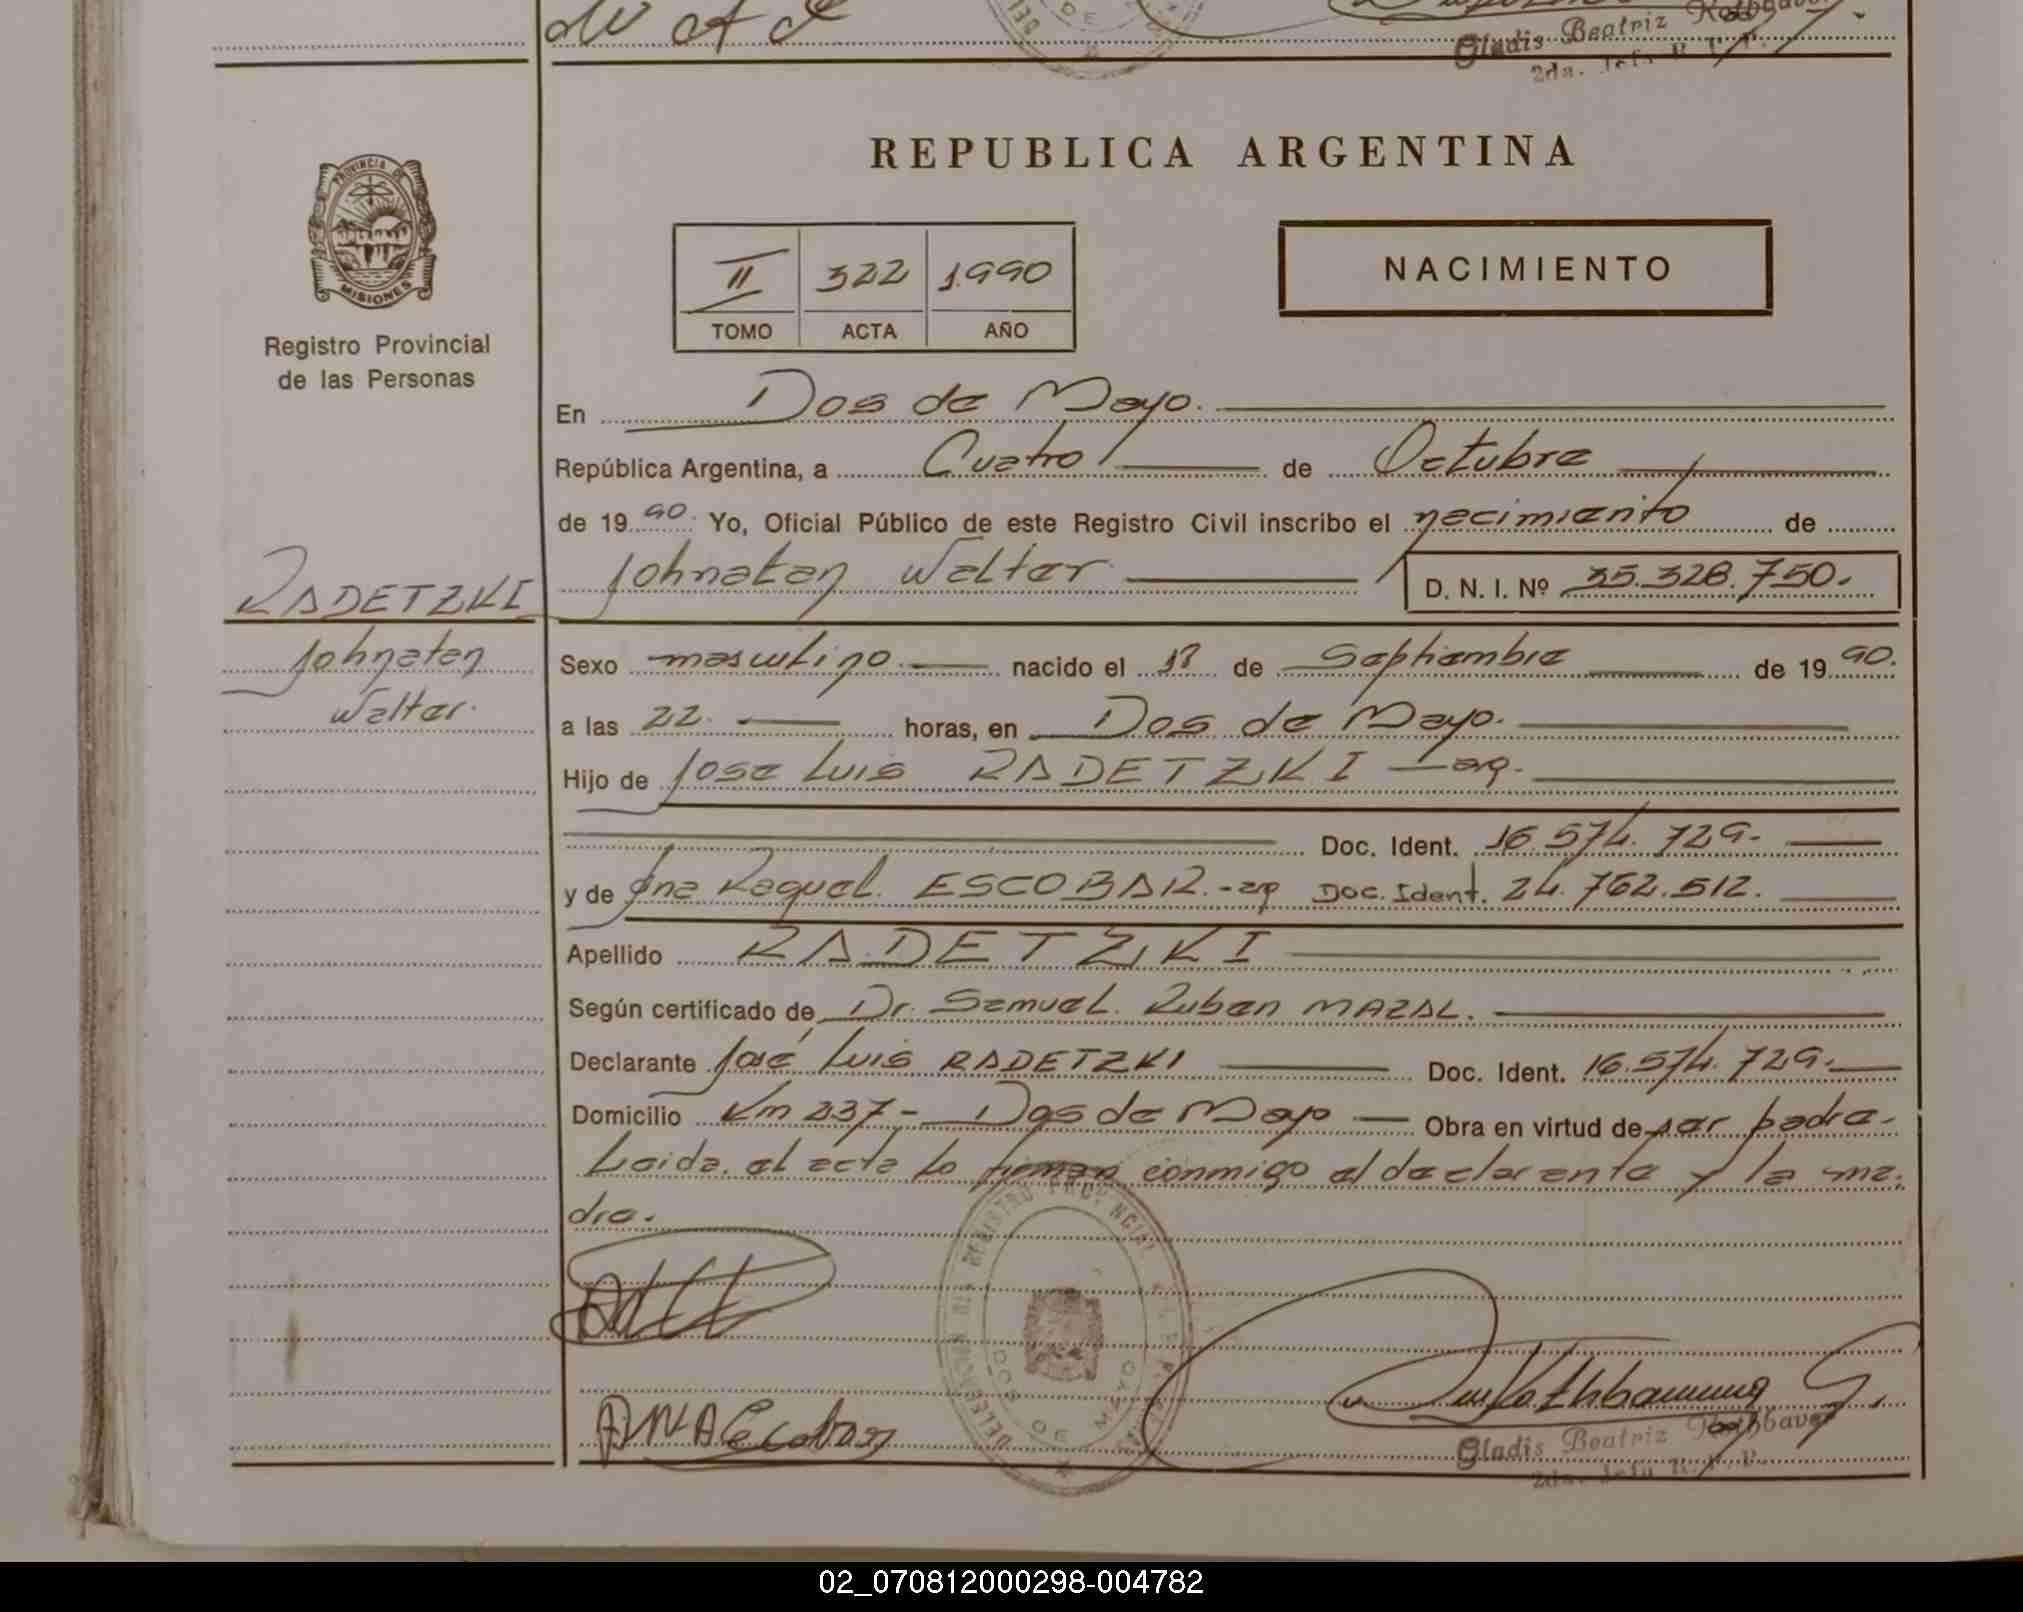 Gladis Beatriz
2da. Jefa R. P. P.
PROVINCIA DE
MISIONES
Registro Provincial
de las Personas
REPUBLICA ARGENTINA
II 322 1990
TOMO ACTA AÑO
NACIMIENTO
En Dos de Mayo.
República Argentina, a Cuatro de Octubre
de 1990. Yo, Oficial Público de este Registro Civil inscribo el nacimiento de
Johnatan Walter D. N. I. Nº 35.328.750.
RADETZKI
Johnatan
Walter.
Sexo masculino. nacido el de Septiembre de 1990.
a las 22. horas, en Dos de Mayo.
Hijo de Jose Luis RADETZKI - arg.
Doc. Ident. 16.574.729.
y de Ana Raquel ESCOBAR.-arg Doc. Ident. 24.762.512.
Apellido RADETZKI
Según certificado de Dr. Samuel Ruben MAZAL.
Declarante José Luis RADETZKI Doc. Ident. 16.574.729.
Domicilio Km 237 - Dos de Mayo Obra en virtud de ser padre.
Leida el acta lo firman conmigo el declarante y la ma.
dre.
REGISTRO PROVINCIAL
DOS DE MAYO
ANA Escobar
Gladis Beatriz Rothbaver
2da. Jefa R. P. P.
02_070812000298-004782